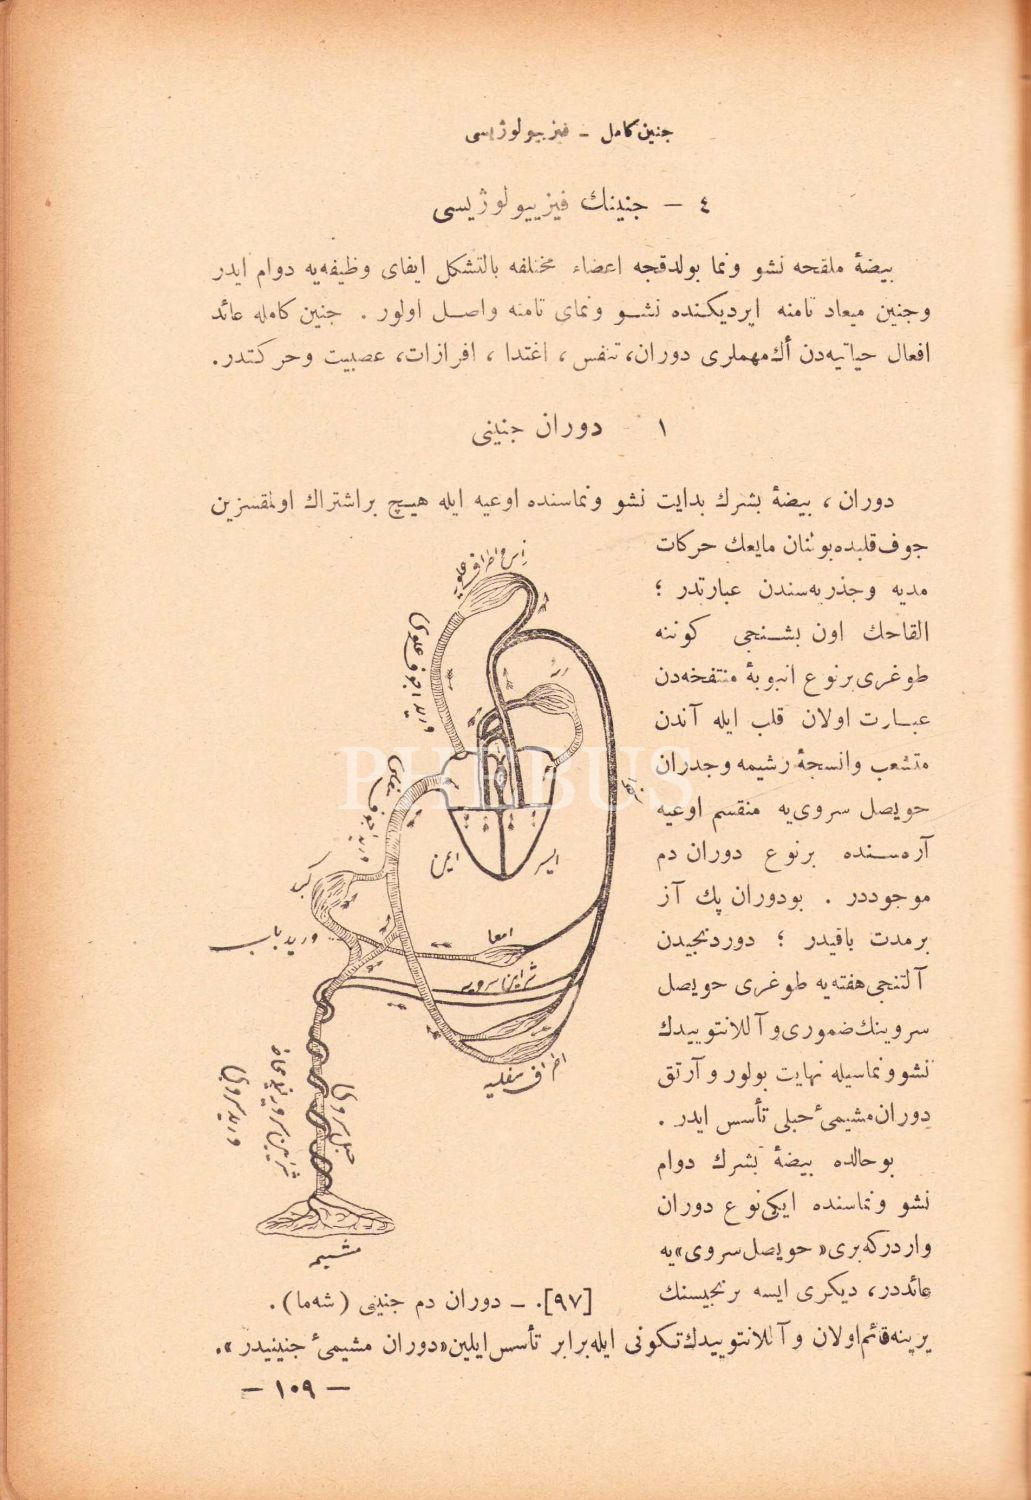 جنین كامل - فیزیولوژیسی
٤ — جنینك فیزییولوژیسی
بیضهٔ ملقحه نشو ونما بولدقجه اعضاء مختلفه بالتشكل ایفای وظیفه‌یه دوام ایدر
وجنین میعاد تامنه ایردیكنده نشـو ونمای تامنه واصـل اولور . جنین كامله عائد
افعال حیاتیه‌دن أك مهملری دوران، تنفس ، اغتدا ، افرازات، عصبیت وحركتدر.
١ دوران جنینی
دوران ، بیضهٔ بشرك بدایت نشو ونماسنده اوعیه ایله هیـچ براشتراك اولمقسزین
جوف قلبده بولنان مایعك حركات
مدیه وجذریه‌سندن عبارتدر ؛
القاحك اون بشـنجی كوننه
طوغری برنوع انبوبهٔ منتفخه‌دن
عبـارت اولان قلب ایله آندن
متشعب وانسجهٔ رشیمه وجدران
حویصل سروی‌یه منقسم اوعیه
آره‌سـنده برنوع دوران دم
موجوددر . بودوران پك آز
برمدت باقیدر ؛ دوردنجیدن
آلتنجی هفته‌یه طوغری حویصل
سروینك ضموری وآللانتوییدك
نشوونماسیله نهایت بولور وآرتق
دوران مشیمیٔ حبلی تأسس ایدر .
بوحالده بیضهٔ بشرك دوام
نشو ونماسنده ایكی نوع دوران
واردركه بری «حویصل سروی» یه
عائددر، دیكری ایسه برنجیسنك
یرینه قائم اولان وآللانتوییدك تكونی ایله برابر تأسس ایلین «دوران مشیمیٔ جنینیدر».
رأس و اطراف علویه
ورید اجوف علوی
رئه
ورید اجوف سفلی
ایمن
ایسر
كبد
ورید باب
امعا
شرایین سرویه
اطراف سفلیه
حبل سروی
ورید سروی
مشیمه
[٩٧]. — دوران دم جنینی (شه‌ما).
— ١٠٩ —
PHEBUS